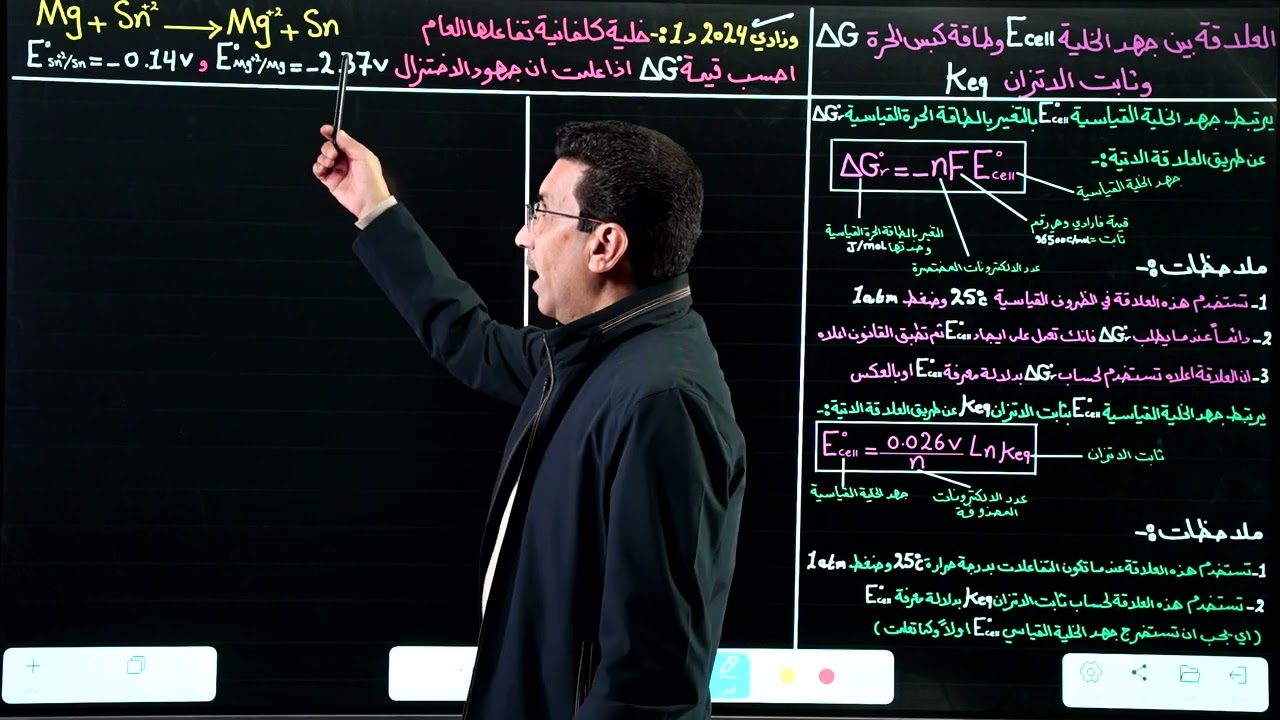 العلاقة بين جهد الخلية Ecell وطاقة كبس الحرة ΔG
وثابت الاتزان Keq
يرتبط جهد الخلية القياسية E°cell بالتغير بالطاقة الحرة القياسية ΔG°r
عن طريق العلاقة الاتية :-
ΔG°r = -nFE°cell
جهد الخلية القياسية
قيمة فارادي وهي رقم
ثابت = 96500C/mol
التغير بالطاقة الحرة القياسية
وحدتها J/mol
عدد الالكترونات المختصرة
ملاحظات :-
1- تستخدم هذه العلاقة في الظروف القياسية 25°c وضغط 1atm
2- دائماً عندما يطلب ΔG°r فانك تعمل على ايجاد E°cell ثم تطبق القانون اعلاه
3- ان العلاقة اعلاه تستخدم لحساب ΔG°r بدلالة معرفة E°cell او بالعكس
يرتبط جهد الخلية القياسية E°cell بثابت الاتزان Keq عن طريق العلاقة الاتية :-
E°cell = 0.026v/n Ln Keq
ثابت الاتزان
جهد الخلية القياسية
عدد الالكترونات
المحذوفة
ملاحظات :-
1- تستخدم هذه العلاقة عندما تكون التفاعلات بدرجة حرارة 25°c وضغط 1atm
2- تستخدم هذه العلاقة لحساب ثابت الاتزان Keq بدلالة معرفة E°cell
( اي يجب ان تستخرج جهد الخلية القياسي E°cell اولاً وكما تعلمت )
وزاري 2024 د1 :- خلية كلفانية تفاعلها العام
Mg + Sn+2 → Mg+2 + Sn
احسب قيمة ΔG° اذا علمت ان جهود الاختزال
E°Mg+2/Mg = -2.37v و E°Sn+2/Sn = -0.14v